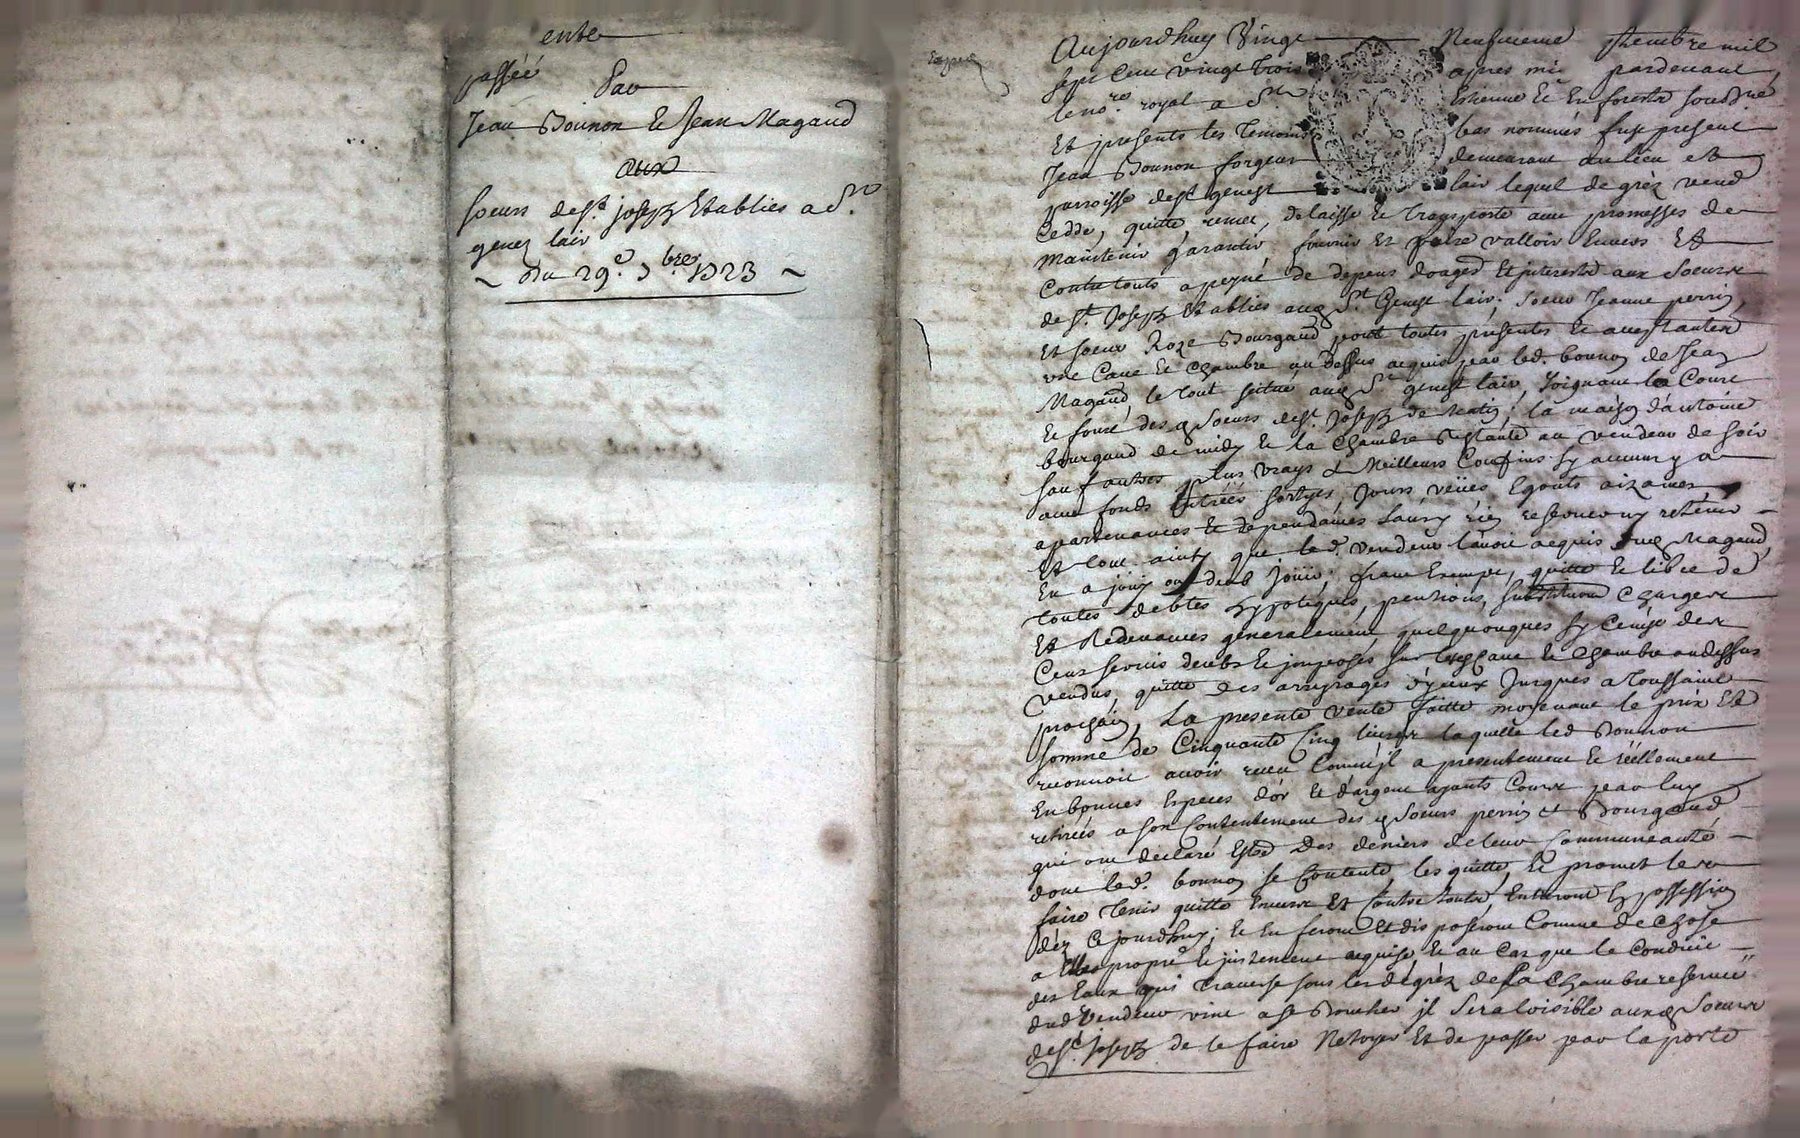 ente
passéé
Par
Jean Bounon Et Jean Magaud
aux
soeurs de st. joseph Etablies a St.
genez lair
~ du 29e. 7bre 1723 ~
Aujourdhuy Vingt Neufvieme sptembre mil
sept Cent vingt trois apres midi pardevant
le no.re royal a St. Estienne Et En forests soubsne
Et presents les Temoins bas nommés fust present
Jean Bounon forgeur demeurant au lieu et
parroisse de st. genest lair lequel de gréz vend
Cedde, quitte, remet, delaisse Et transporte avec promesses de
maintenir garantir fournir Et faire valloir Envers Et
Contre touts a peyne de depens domages Et interests aux Soeurs
de st. Joseph Etablies aud. St. Genest lair. Soeur Jeanne perrin,
Et soeur Roze Bourgaud pour toutes presentes Et acceptantes
une Cave Et chambre au dessus acquis par led. bounon de Jean
Magaud le tout scitué aud. St. genest lair Joignant la Cour
Et fourt des d. Soeurs de st. Joseph de matin; la maison d'antoine
bourgaud de midy Et la chambre Restante au vendeur de soir
sauf autres plus vrays & Meilleurs Confins sy aucuns y a
avec fonds Entréés sortyes Jours veües Egouts aizances
apartenances Et dependances sans y rien reserver ny retenir
Et tout ainsy que led. vendeur l'avoit acquis dud. Magaud,
En a jouy ou deub Joüir; franc Exempt, quitte Et libre de
toutes debtes hypoteques, pentions, substitution Charges
Et Redevances generalement quelquonques sy Ce n'est des
Cens servis deubs Et imposés sur lesd. Cave Et Chambre au dessus
vendus, quitte des arreyrages d'yceux Jusques a Toussaint
prochain, La presente vente faitte moyenant le prix Et
somme de Cinquante Cinq livres laquelle led. Bounon
reconnoit avoir receu Comme il a presentement Et réellement
En bonnes Especes d'or Et d'argent ayants Cours par luy
retirées a son Contentement des d. Soeurs perrin et Bourgaud
qui ont declaré Estre Des deniers de leur Communeauté
dont led. bounon se Contente, les quitte, Et promet les
faire tenir quitte Envers Et Contre touts, Entreront En possession
déz Ce jourdhuy; Et En feront Et disposeront Comme de chose
a Elles propre Et justement acquise, Et au Cas que le Conduit
des Eaux qui traverse sous les degrez de la Chambre reservée
dud. Vendeur vint a se Boucher il Sera loisible aux d. Soeurs
de st. joseph de le faire Netoyer Et de passer par la porte